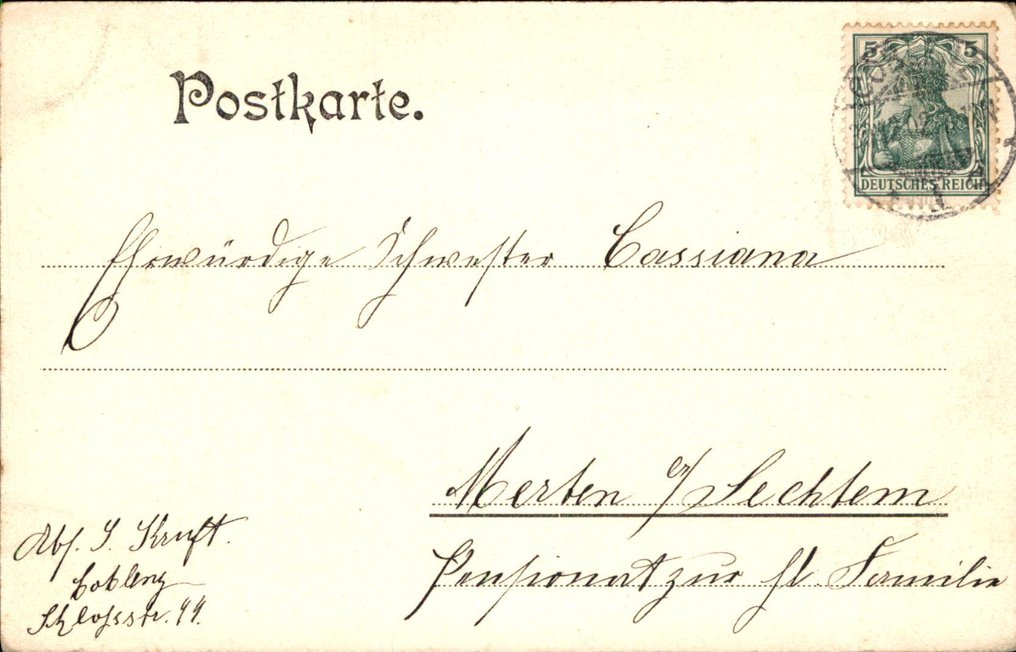 Postkarte.
5 5
DEUTSCHES REICH
Ehrwürdige Schwester Cassiana
Merten b/ Sechtem
Pensionat zur hl. Familie
Abs. S. Kruft.
Coblenz
Schlossstr. 44.